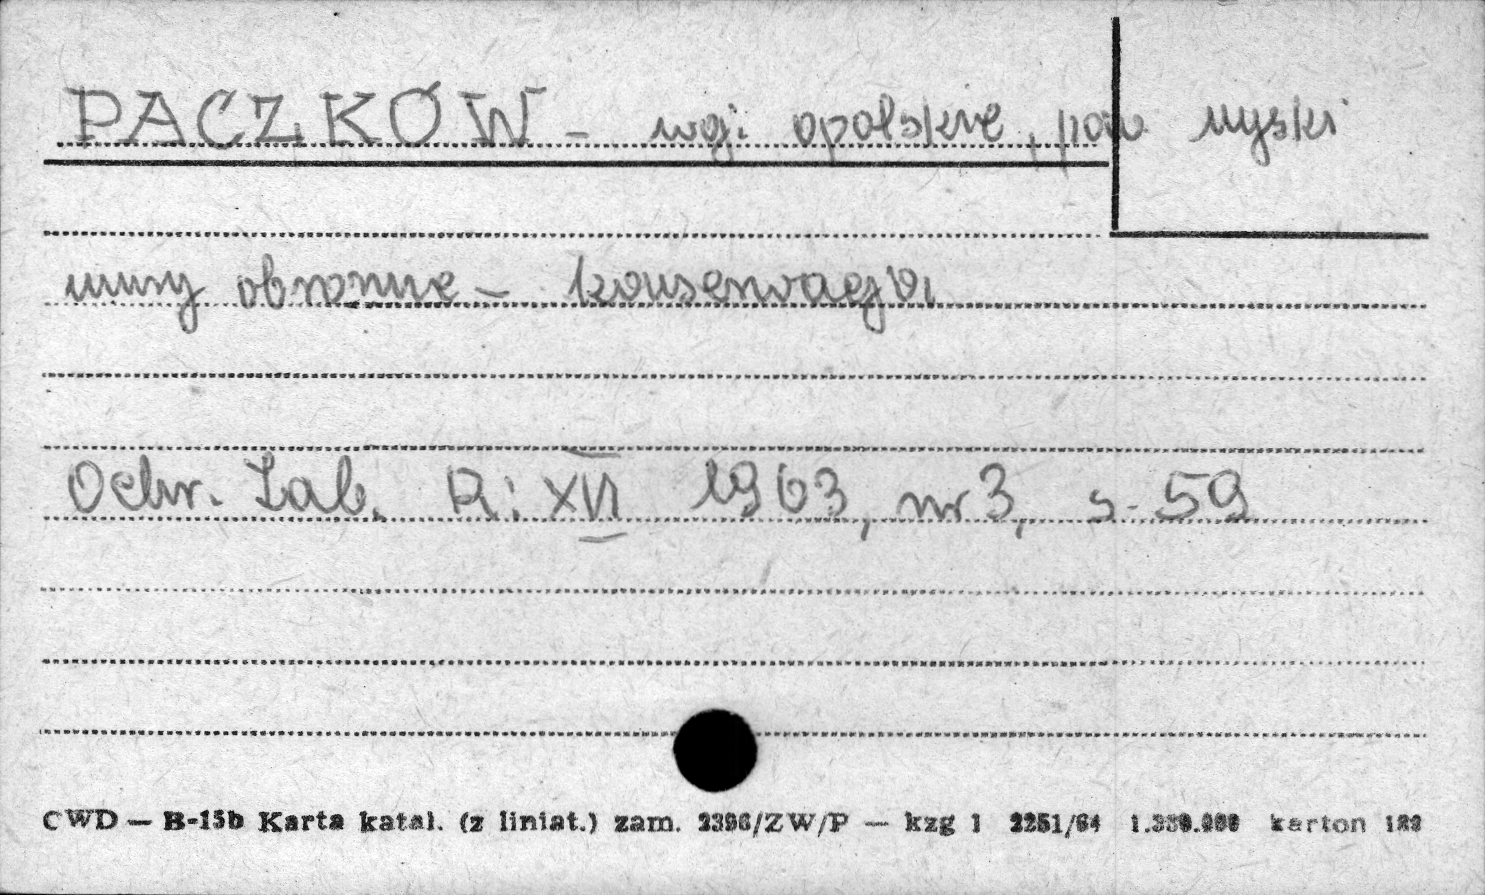 PACZKÓW - woj. opolskie, pow nyski
mury obronne - konserwacja
Ochr. Zab. R: XVI 1963, nr 3, s. 59
CWD — B-15b Karta katal. (z liniat.) zam. 2396/ZW/P — kzg 1 2251/64 karton